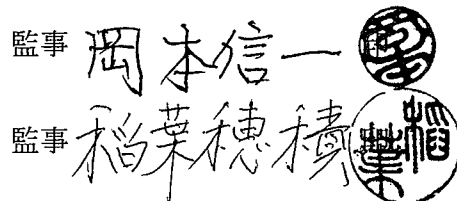 監事 岡本信一
監事 稲葉穂積 稲葉